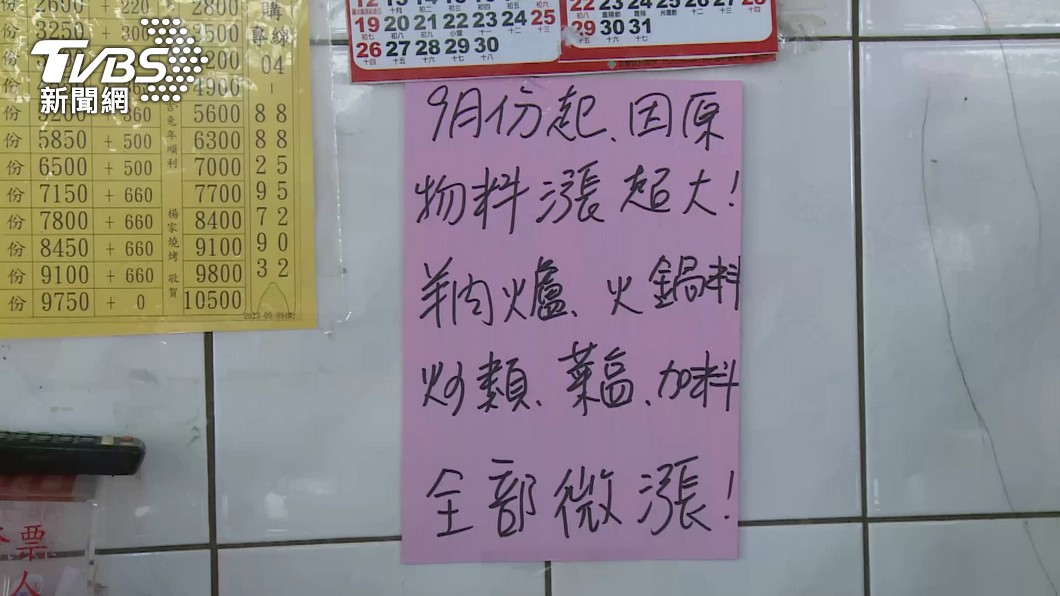 TVBS
新聞網
9月份起、因原
物料漲超大!
羊肉爐、火鍋料
炒類、菜區、加料
全部微漲!
2800
3250 + 300
4900
份 + 360 5600
份 5850 + 500 6300
份 6500 + 500 7000
份 7150 + 660 7700
份 7800 + 660 8400
份 8450 + 660 9100
份 9100 + 660 9800
份 9750 + 0 10500
兔年順利
楊家燒烤 敬賀
購
專線
04
-
88
88
25
95
72
90
32
19 20 21 22 23 24 25
26 27 28 29 30
22 23 24 25 26 27 28
29 30 31
票
人